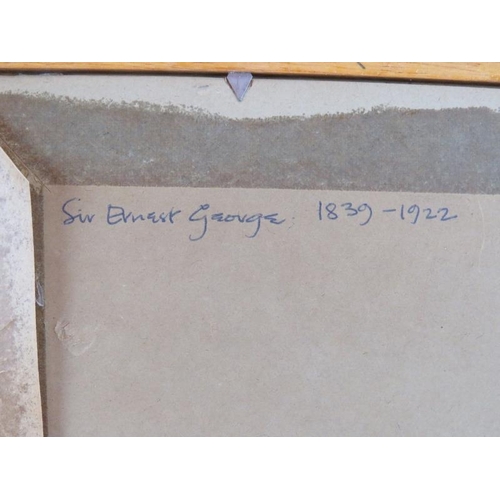 Sir Ernest George. 1839-1922